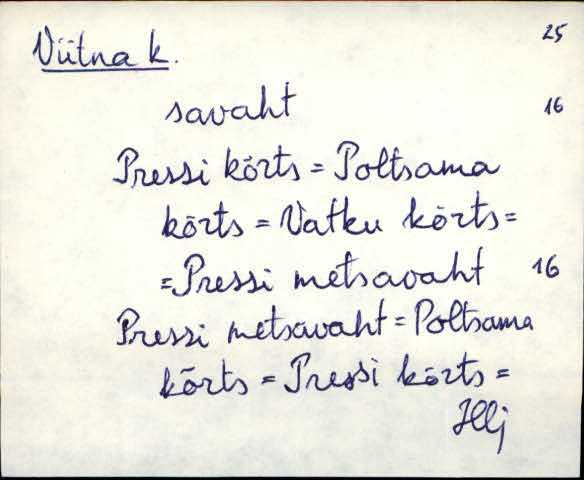 Viitna k. 25
savaht 16
Pressi kõrts = Poltsama
kõrts = Vatku kõrts =
= Pressi metsavaht 16
Pressi metsavaht = Poltsama
kõrts = Pressi kõrts =
Hlj